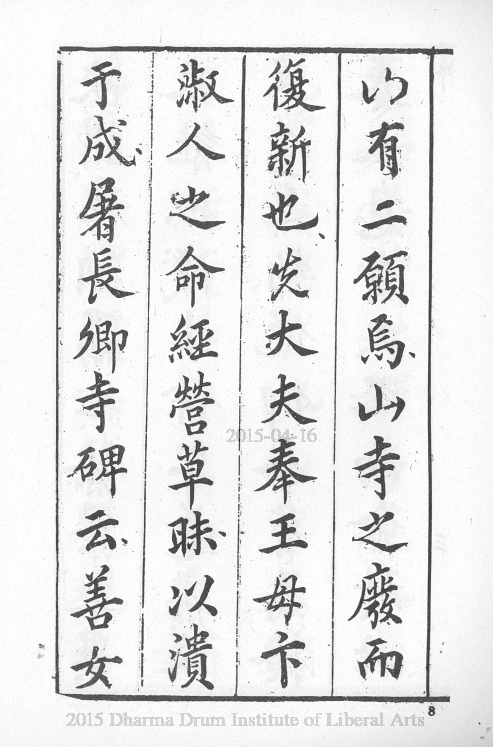 以有二願焉、山寺之廢而
復新也、先大夫奉王母卞
淑人之命經營草昧、以潰
于成、屠長卿寺碑云、善女
2015-04-16
2015 Dharma Drum Institute of Liberal Arts
8